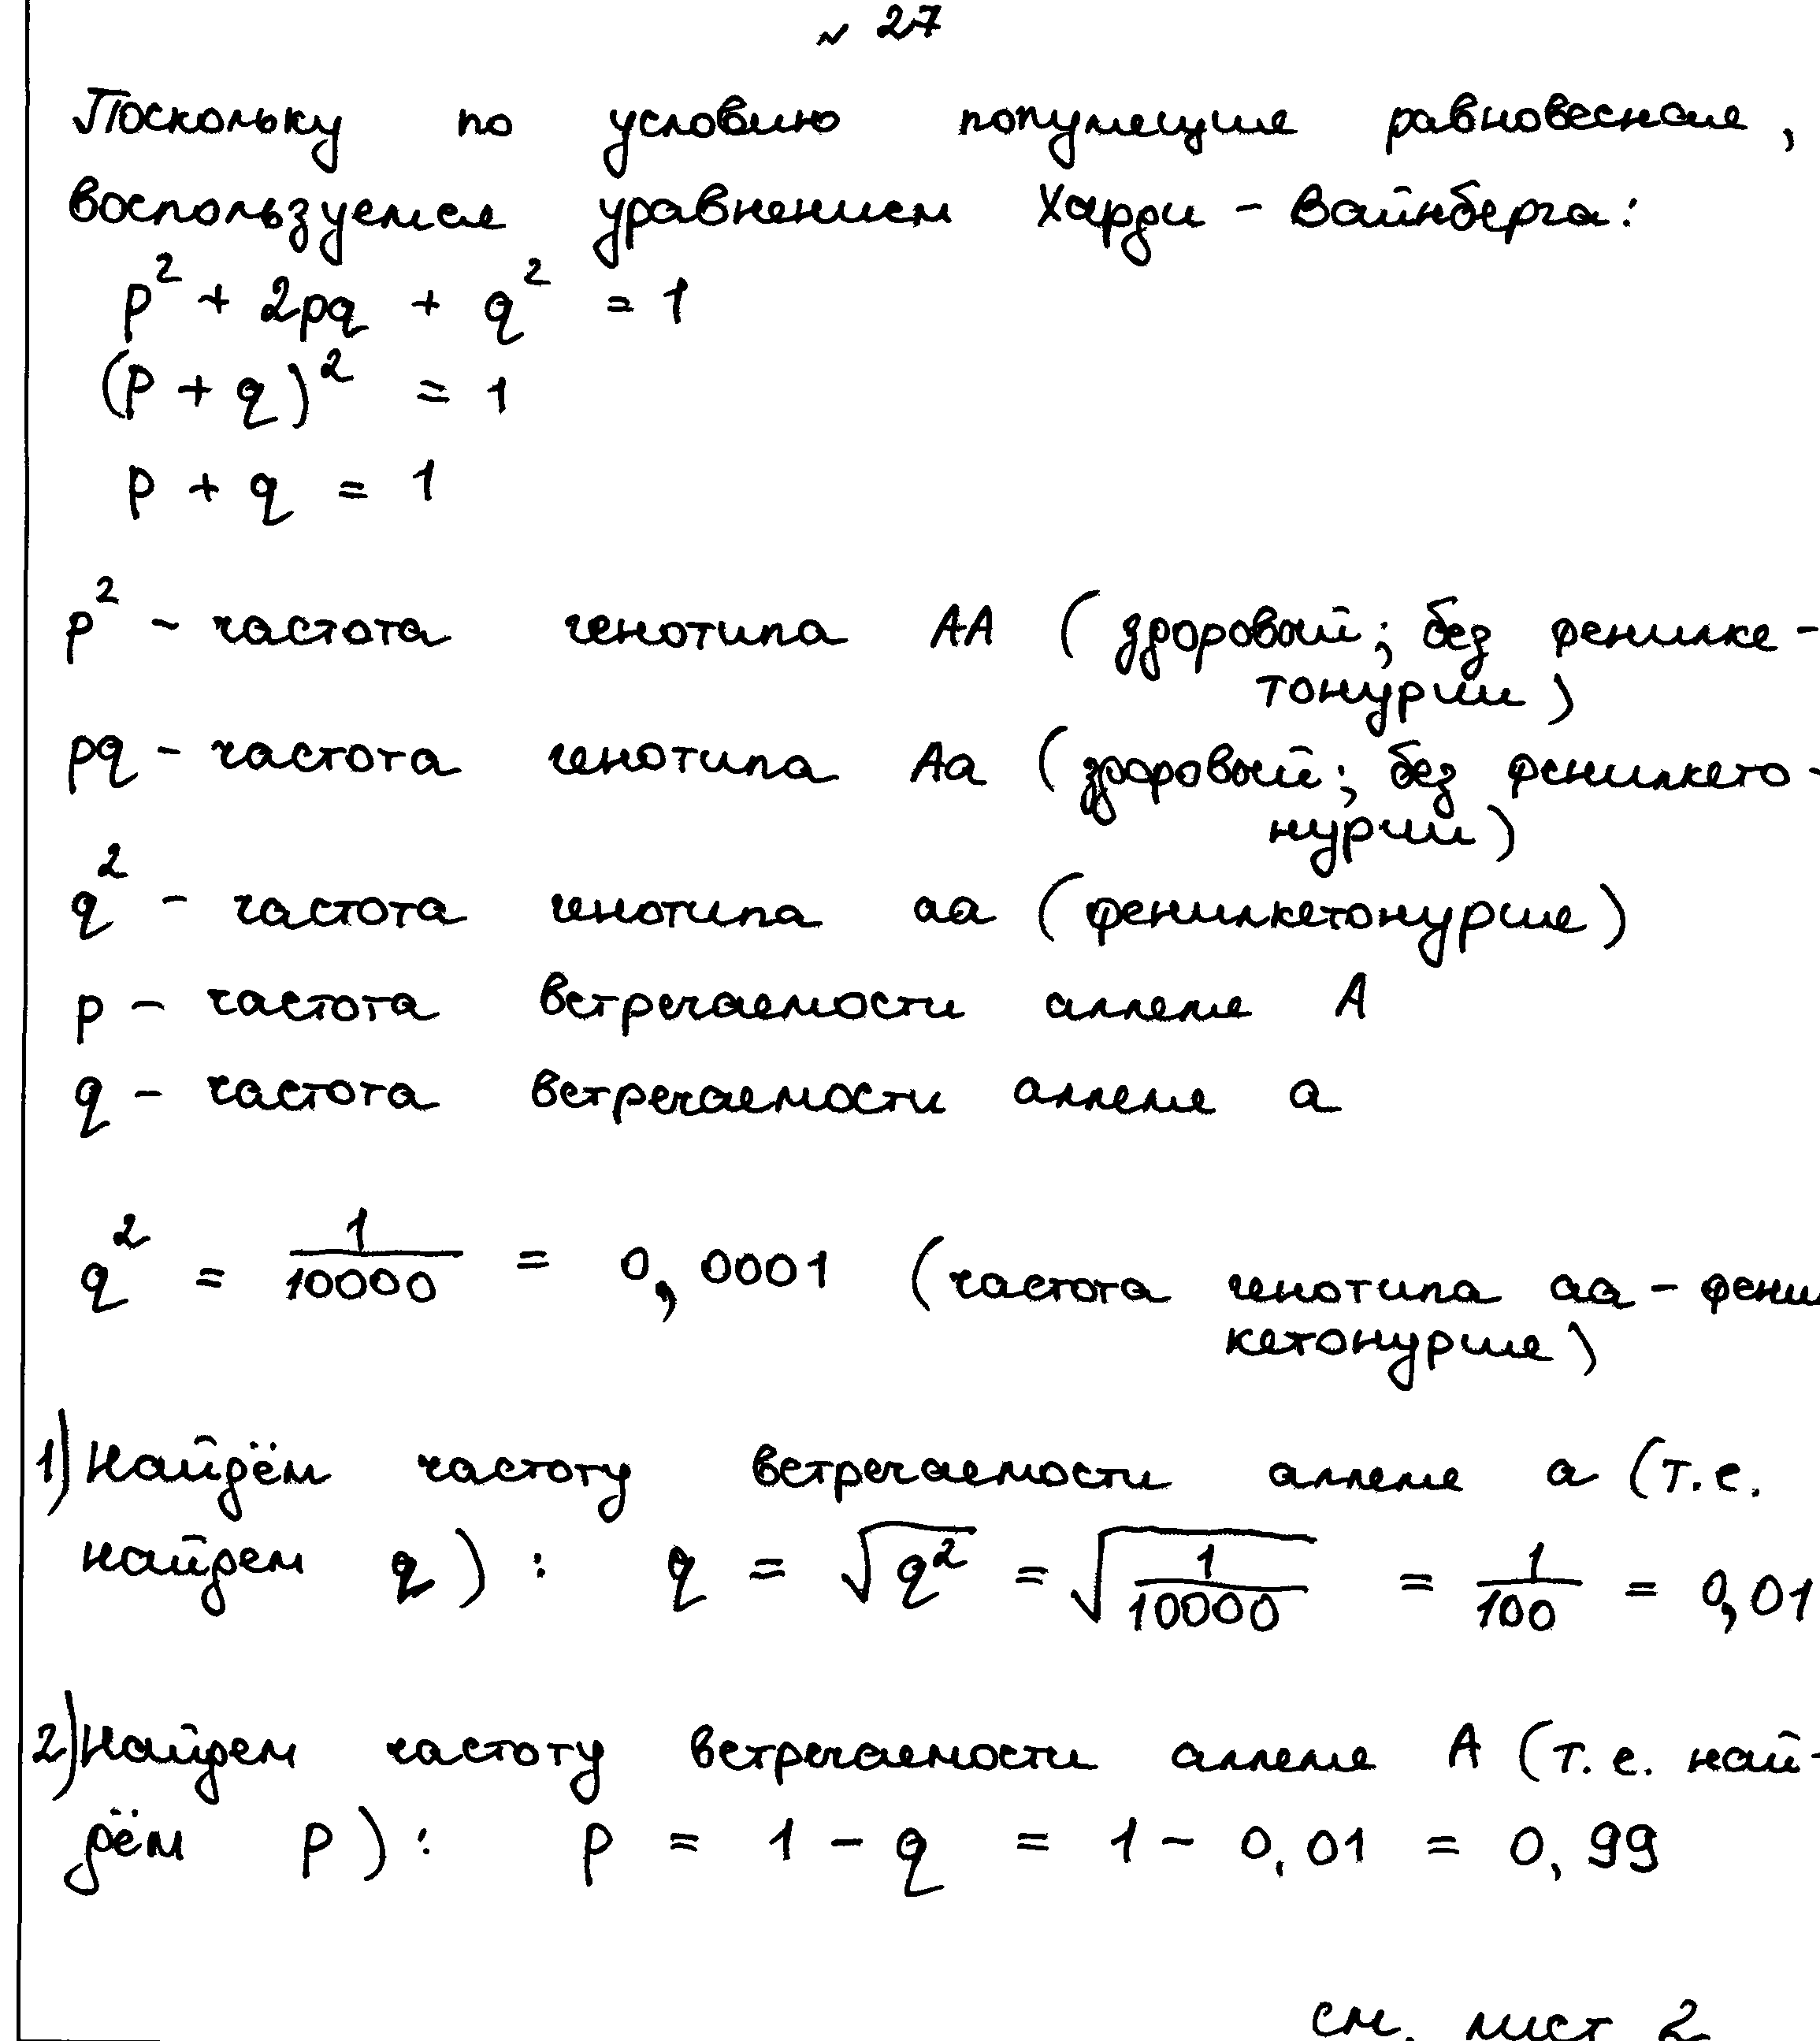 № 27
Поскольку по условию популяция равновесная,
воспользуемся уравнением Харди - Вайнберга:
p² + 2pq + q² = 1
(p + q)² = 1
p + q = 1
p² - частота генотипа АА (здоровый; без фенилке-
тонурии)
pq - частота генотипа Аа (здоровый; без фенилкето-
нурии)
q² - частота генотипа аа (фенилкетонурия)
p - частота встречаемости аллеля А
q - частота встречаемости аллеля а
q² = 1/10000 = 0,0001 (частота генотипа аа - фенил
кетонурия)
1) Найдём частоту встречаемости аллеля а (т.е.
найдем q): q = √q² = √1/10000 = 1/100 = 0,01
2) Найдем частоту встречаемости аллеля А (т.е. най-
дём p): p = 1 - q = 1 - 0,01 = 0,99
см. лист 2